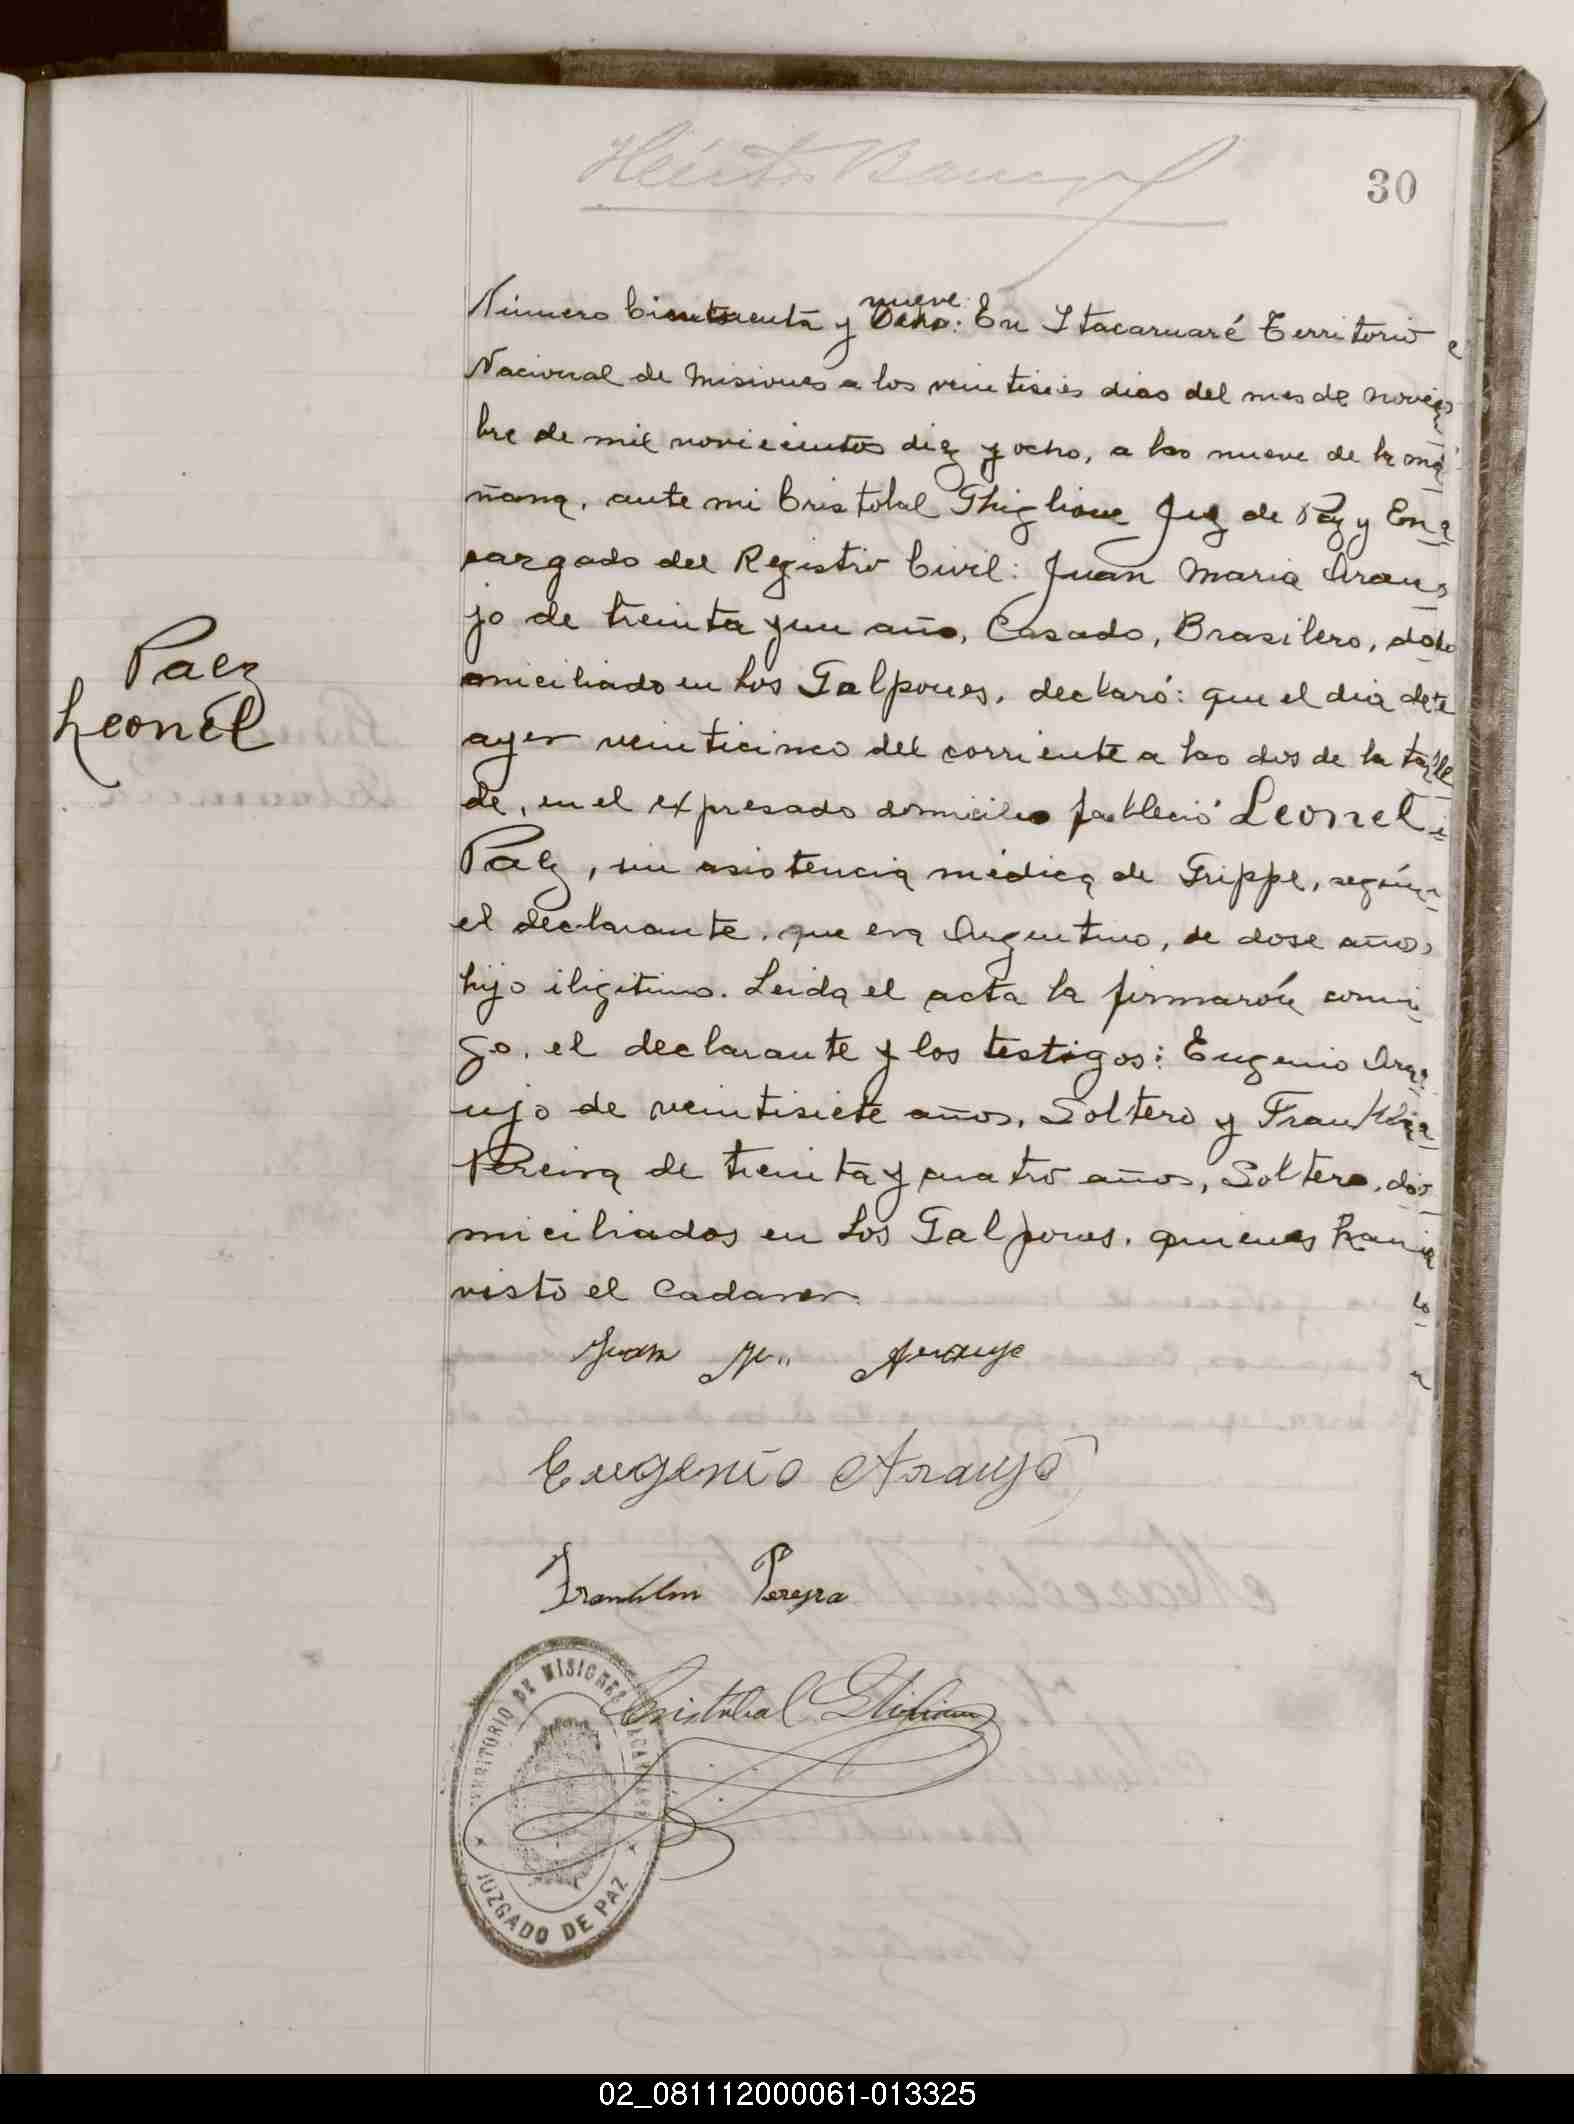 30
Paez
Leonel
Número Cincuenta y nueve: En Itacaruaré Territorio
Nacional de Misiones a los veintiseis dias del mes de noviem
bre de mil noviecientos diez y ocho, a las nueve de la ma
ñana, ante mi Cristobal Ghiglione Juez de Paz y En
cargado del Registro Civil: Juan Maria Arau
jo de treinta y un año, Casado, Brasilero, do
miciliado en Los Galpones, declaró: que el dia de
ayer veinticinco del corriente a las dos de la tar
de, en el expresado domicilio fallecio Leonel
Paez, sin asistencia médica de Grippe, según
el declarante, que era Argentino, de dose años
hijo iligitimo. Leida el acta la firmarón conmi
go, el declarante y los testigos: Eugenio Ara
ujo de veintisiete años, Soltero y Franklin
Pereira de treinta y cuatro años, Soltero, do
miciliados en Los Galpones, quienes han
visto el Cadaver.
Juan M. Araujo
Eugenio Araujo
Franklin Pereyra
Cristobal Ghiglione
TERRITORIO DE MISIONES ITACARUARE
JUZGADO DE PAZ
02_081112000061-013325